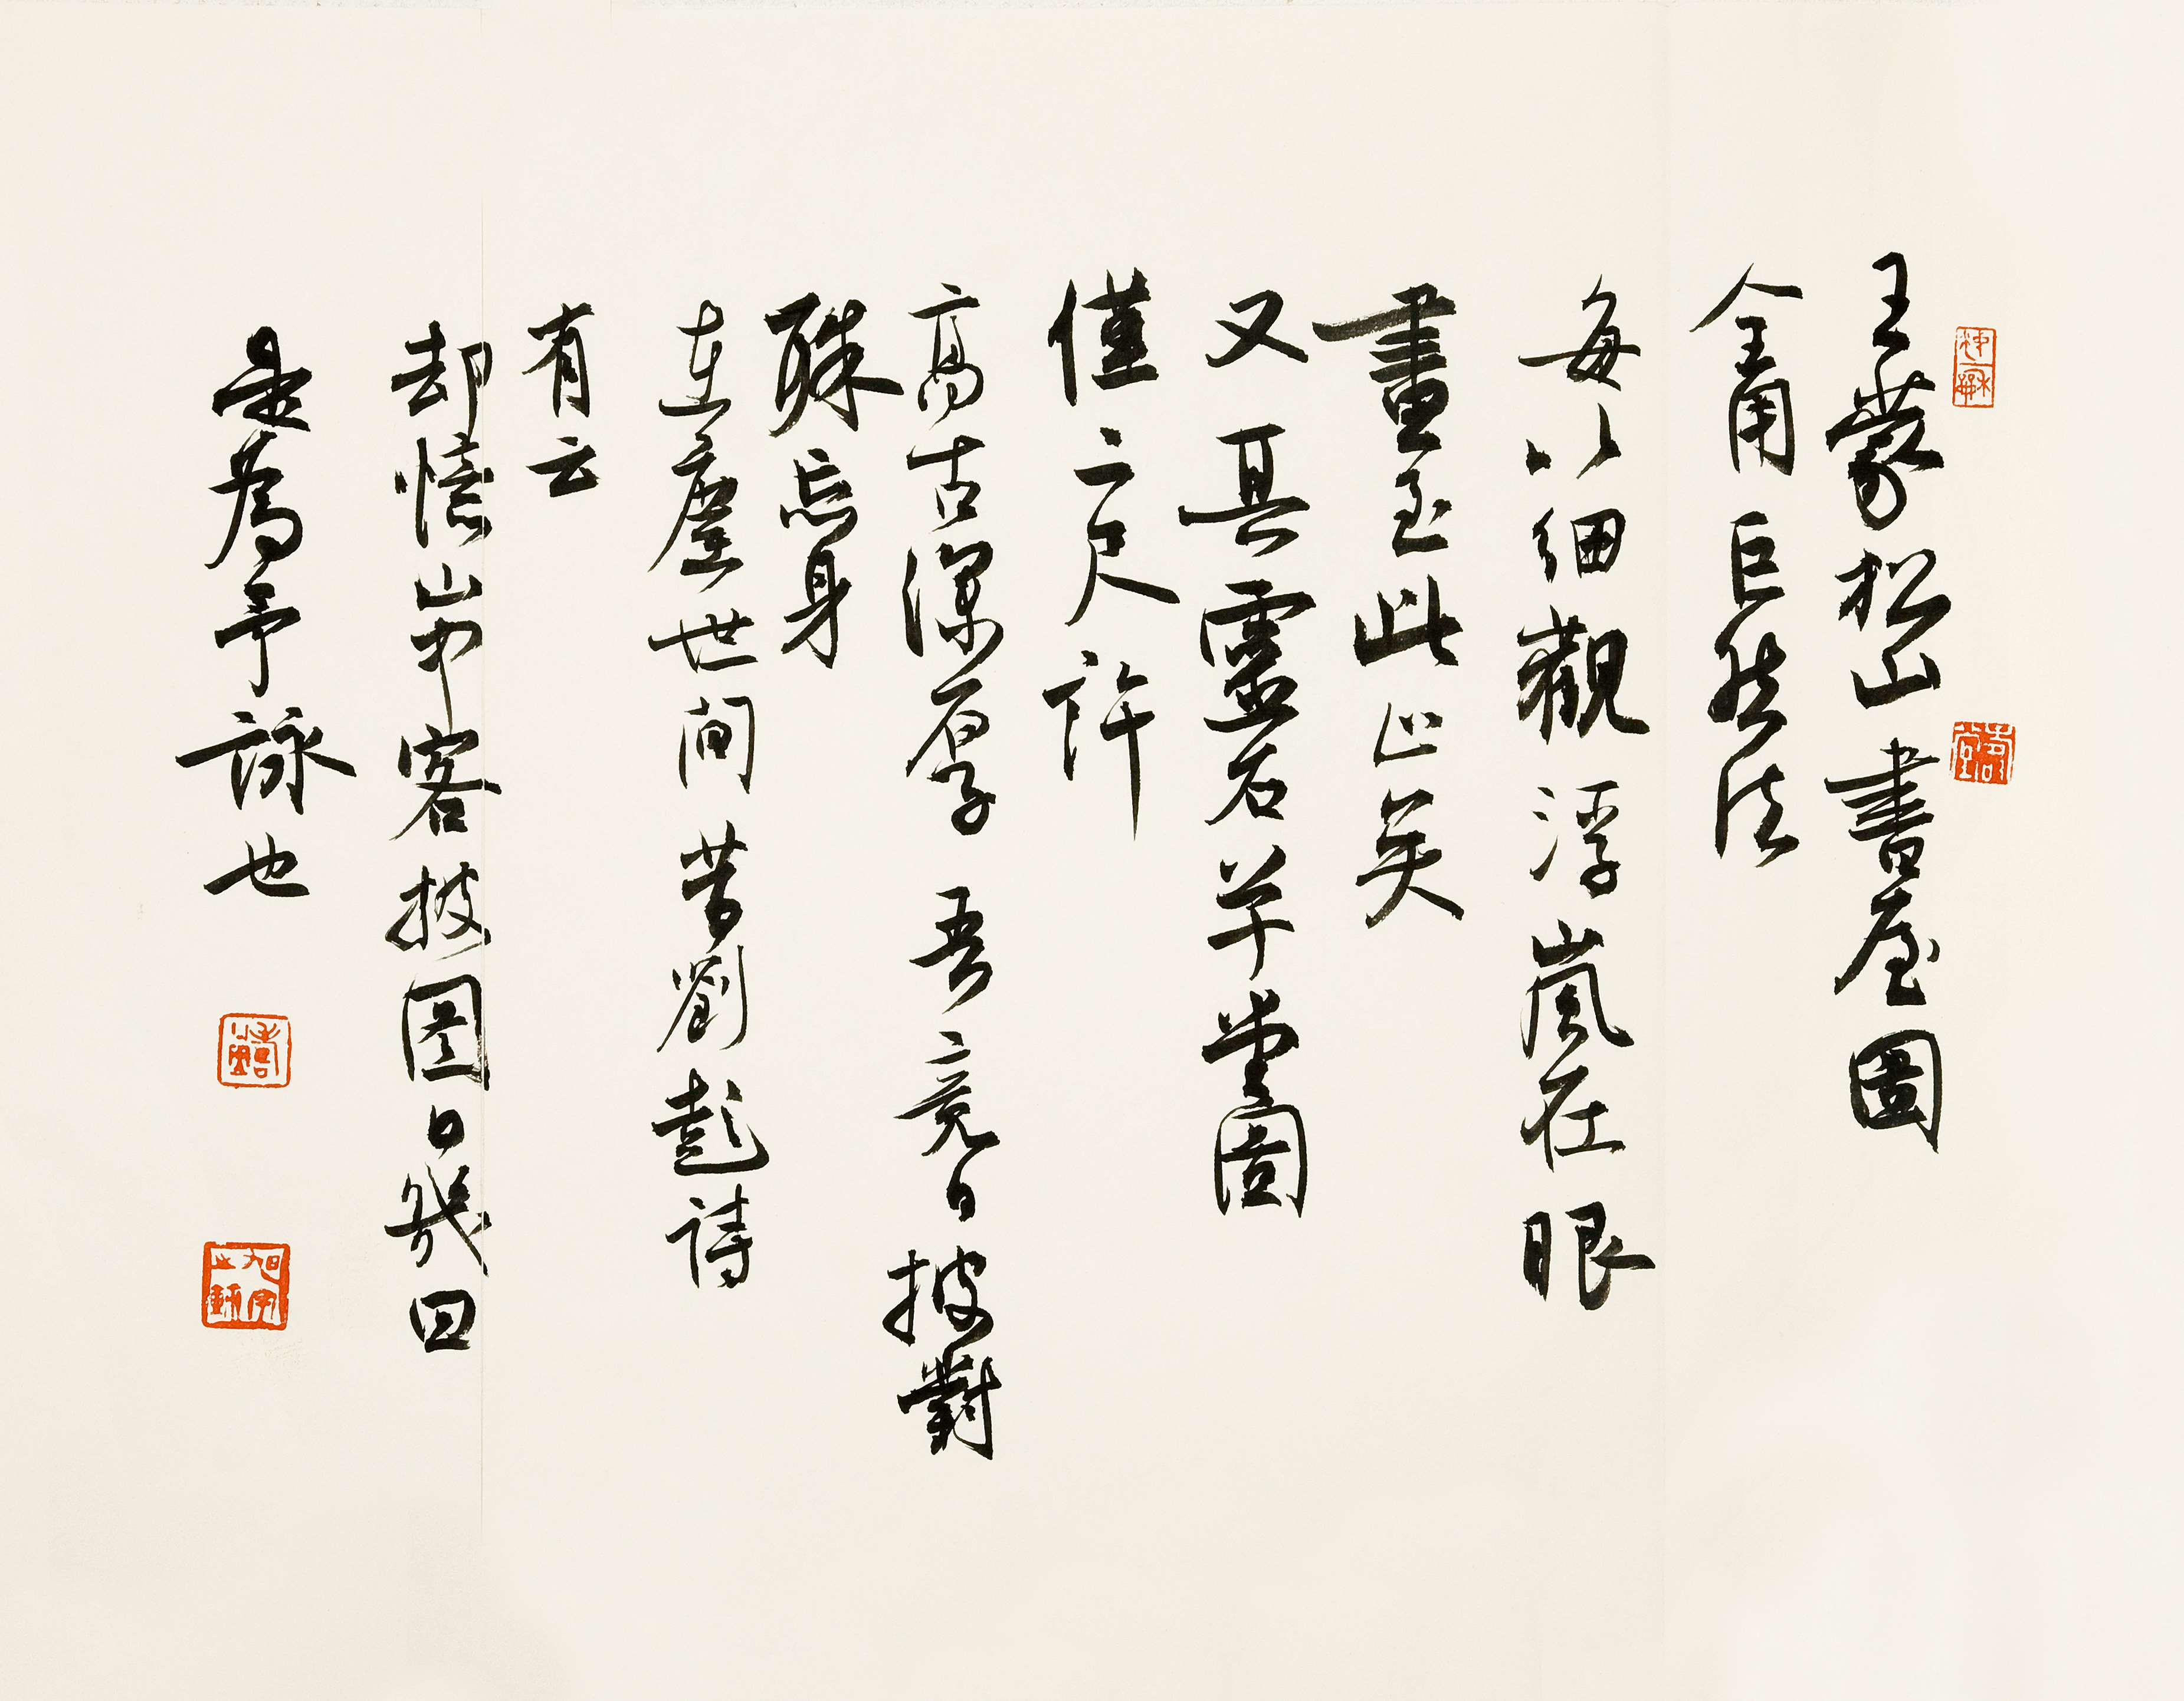 王蒙松山書屋圖
全用巨然法
每以細觀浮嵐在眼
畫至此止矣
又其靈石草堂圖
僅二尺許
高古深厚吾竟日披對
殊忘身
在塵世間昔劉彪詩
有云
却憶山中客披圖日幾回
是為予詠也